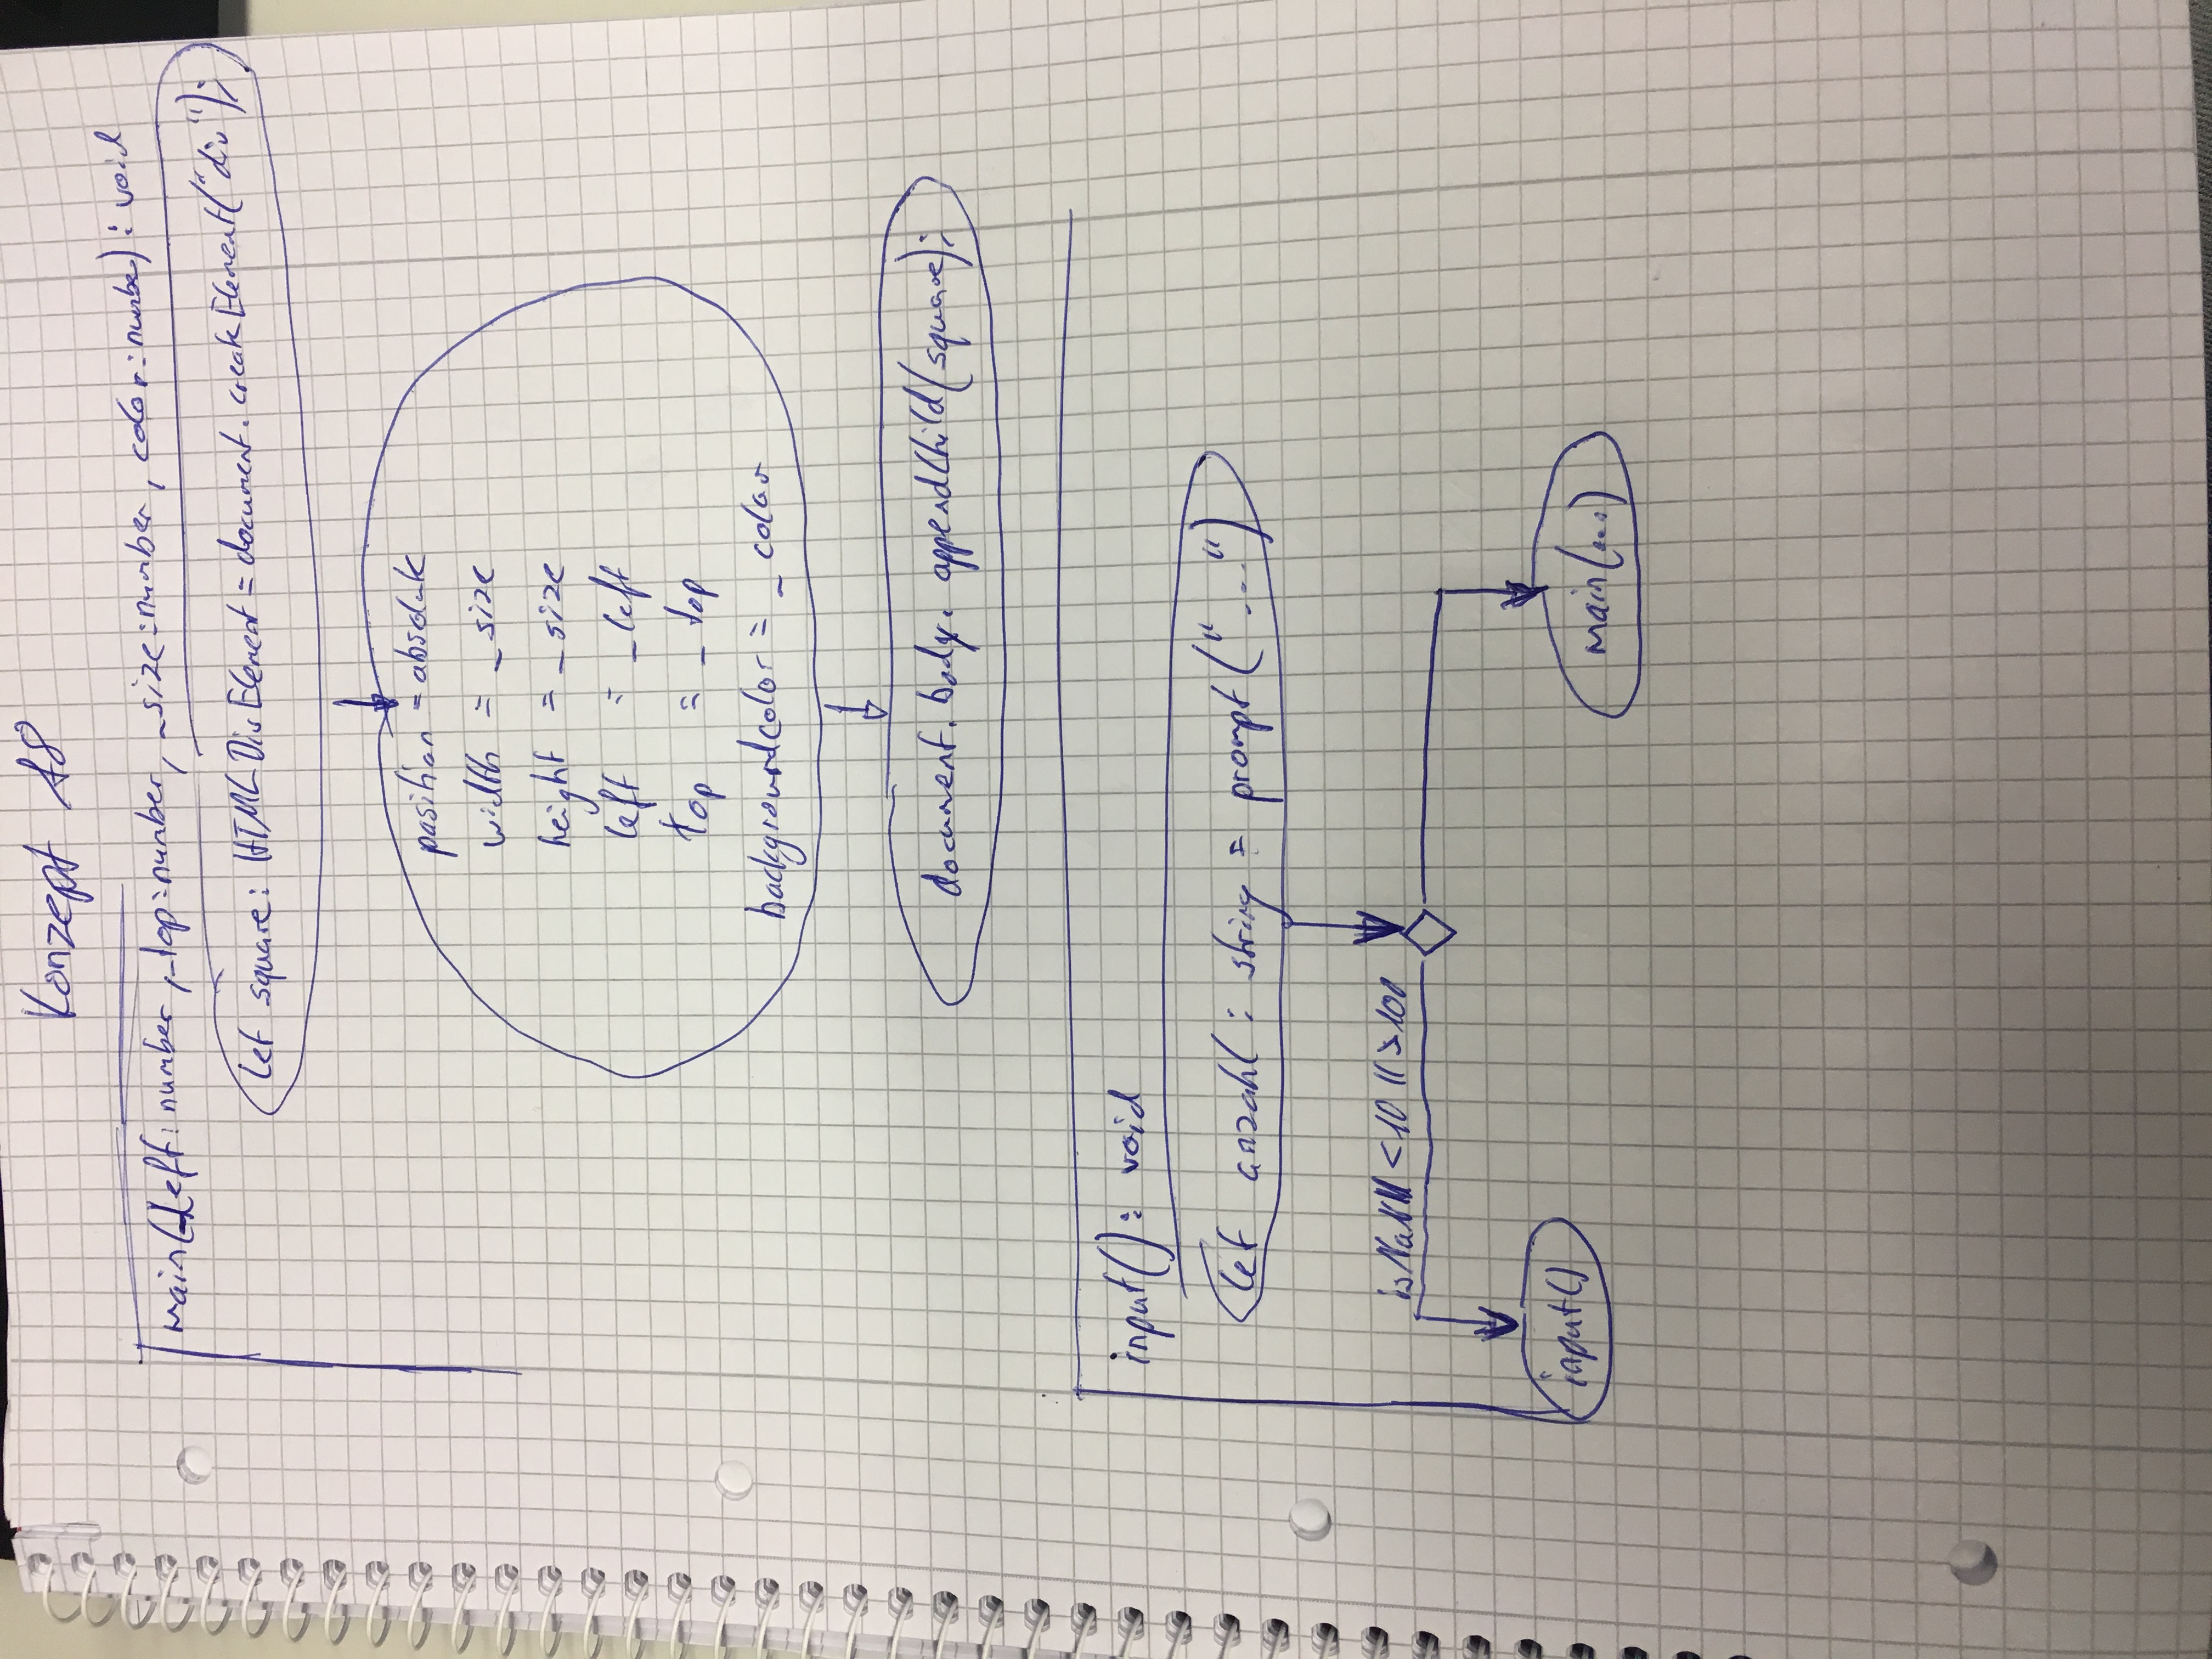 Konzept A8
main(_left: number, _top: number, _size: number, color: number): void
let square: HTMLDivElement = document.createElement("div");
position = absolute
width = _size
height = _size
left = _left
top = _top
backgroundcolor = _color
document.body.appendChild(square);
input(): void
let anzahl: string = prompt("...")
isNaN || <10 || >100
input()
main(...)